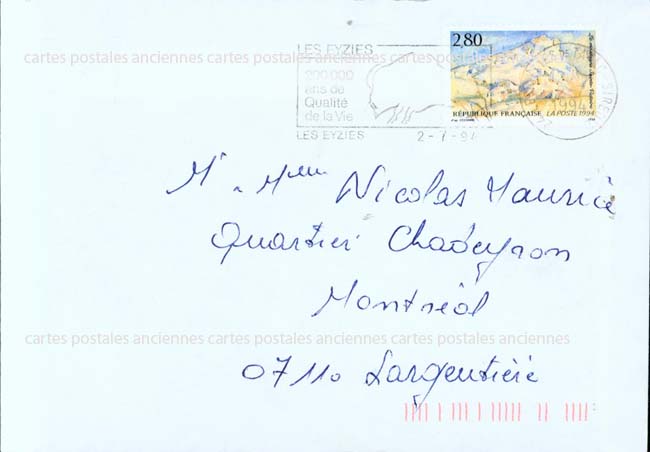 cartes postales anciennes cartes postales anciennes cartes postales anciennes
LES EYZIES
200.000
ans de
Qualité
de la Vie
LES EYZIES 2-7-94
2,80
RÉPUBLIQUE FRANÇAISE LA POSTE 1994
1994
Mr Melle Nicolas Maurice
Quartier Chadeyron
Montréal
cartes postales anciennes cartes postales anciennes cartes postales anciennes
07110 Largentière